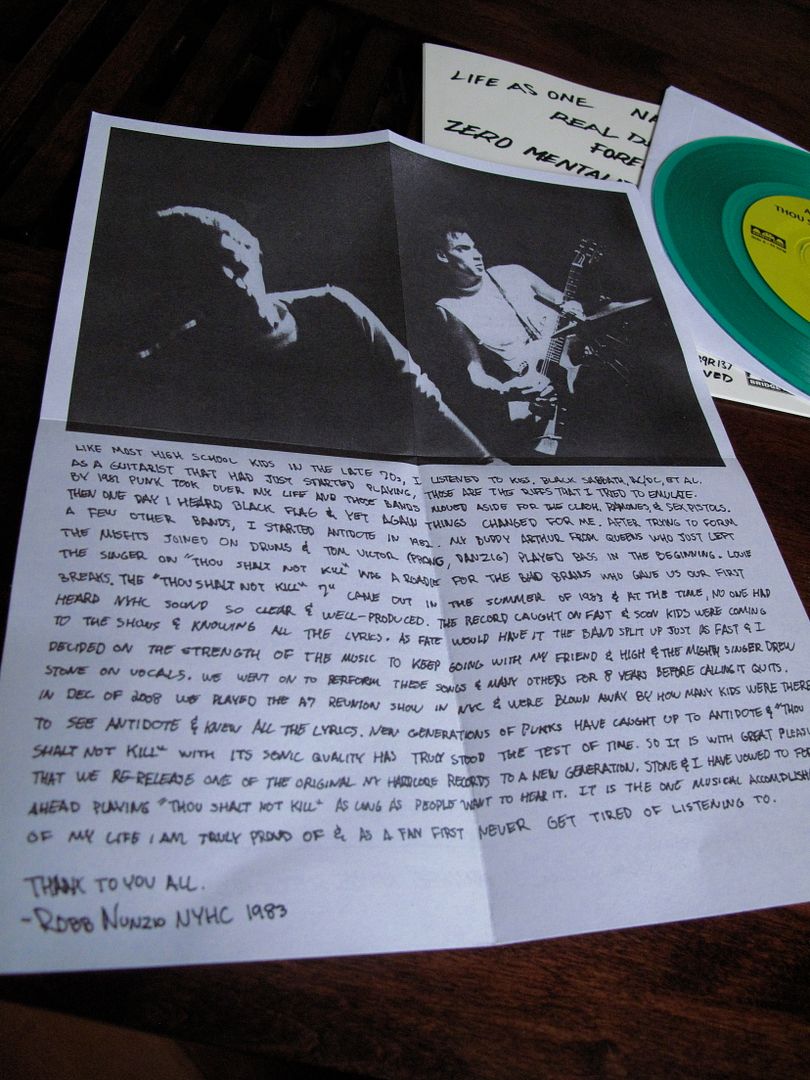 LIFE AS ONE NA
REAL D
FORE
ZERO MENTALI
THOU S
9R137
VED
BRIDGE
LIKE MOST HIGH SCHOOL KIDS IN THE LATE 70s, I LISTENED TO KISS, BLACK SABBATH, AC/DC, ET AL.
AS A GUITARIST THAT HAD JUST STARTED PLAYING, THOSE ARE THE RIFFS THAT I TRIED TO EMULATE.
BY 1981 PUNK TOOK OVER MY LIFE AND THOSE BANDS MOVED ASIDE FOR THE CLASH, RAMONES, & SEX PISTOLS.
THEN ONE DAY I HEARD BLACK FLAG & YET AGAIN THINGS CHANGED FOR ME. AFTER TRYING TO FORM
A FEW OTHER BANDS, I STARTED ANTIDOTE IN 1982. MY BUDDY ARTHUR FROM QUEENS WHO JUST LEFT
THE MISFITS JOINED ON DRUMS & TOM VICTOR (PRONG, DANZIG) PLAYED BASS IN THE BEGINNING. LOUIE
THE SINGER ON "THOU SHALT NOT KILL" WAS A ROADIE FOR THE BAD BRAINS WHO GAVE US OUR FIRST
BREAKS. THE "THOU SHALT NOT KILL" 7" CAME OUT IN THE SUMMER OF 1983 & AT THE TIME, NO ONE HAD
HEARD NYHC SOUND SO CLEAR & WELL-PRODUCED. THE RECORD CAUGHT ON FAST & SOON KIDS WERE COMING
TO THE SHOWS & KNOWING ALL THE LYRICS. AS FATE WOULD HAVE IT THE BAND SPLIT UP JUST AS FAST & I
DECIDED ON THE STRENGTH OF THE MUSIC TO KEEP GOING WITH MY FRIEND & HIGH & THE MIGHTY SINGER DREW
STONE ON VOCALS. WE WENT ON TO PERFORM THESE SONGS & MANY OTHERS FOR 8 YEARS BEFORE CALLING IT QUITS.
IN DEC OF 2008 WE PLAYED THE A7 REUNION SHOW IN NYC & WERE BLOWN AWAY BY HOW MANY KIDS WERE THERE
TO SEE ANTIDOTE & KNEW ALL THE LYRICS. NEW GENERATIONS OF PUNKS HAVE CAUGHT UP TO ANTIDOTE & "THOU
SHALT NOT KILL" WITH ITS SONIC QUALITY HAS TRULY STOOD THE TEST OF TIME. SO IT IS WITH GREAT PLEASU
THAT WE RE-RELEASE ONE OF THE ORIGINAL NY HARDCORE RECORDS TO A NEW GENERATION. STONE & I HAVE VOWED TO FOR
AHEAD PLAYING "THOU SHALT NOT KILL" AS LONG AS PEOPLE WANT TO HEAR IT. IT IS THE ONE MUSICAL ACCOMPLISH
OF MY LIFE I AM TRULY PROUD OF & AS A FAN FIRST NEVER GET TIRED OF LISTENING TO.
THANK TO YOU ALL.
-ROBB NUNZIO NYHC 1983